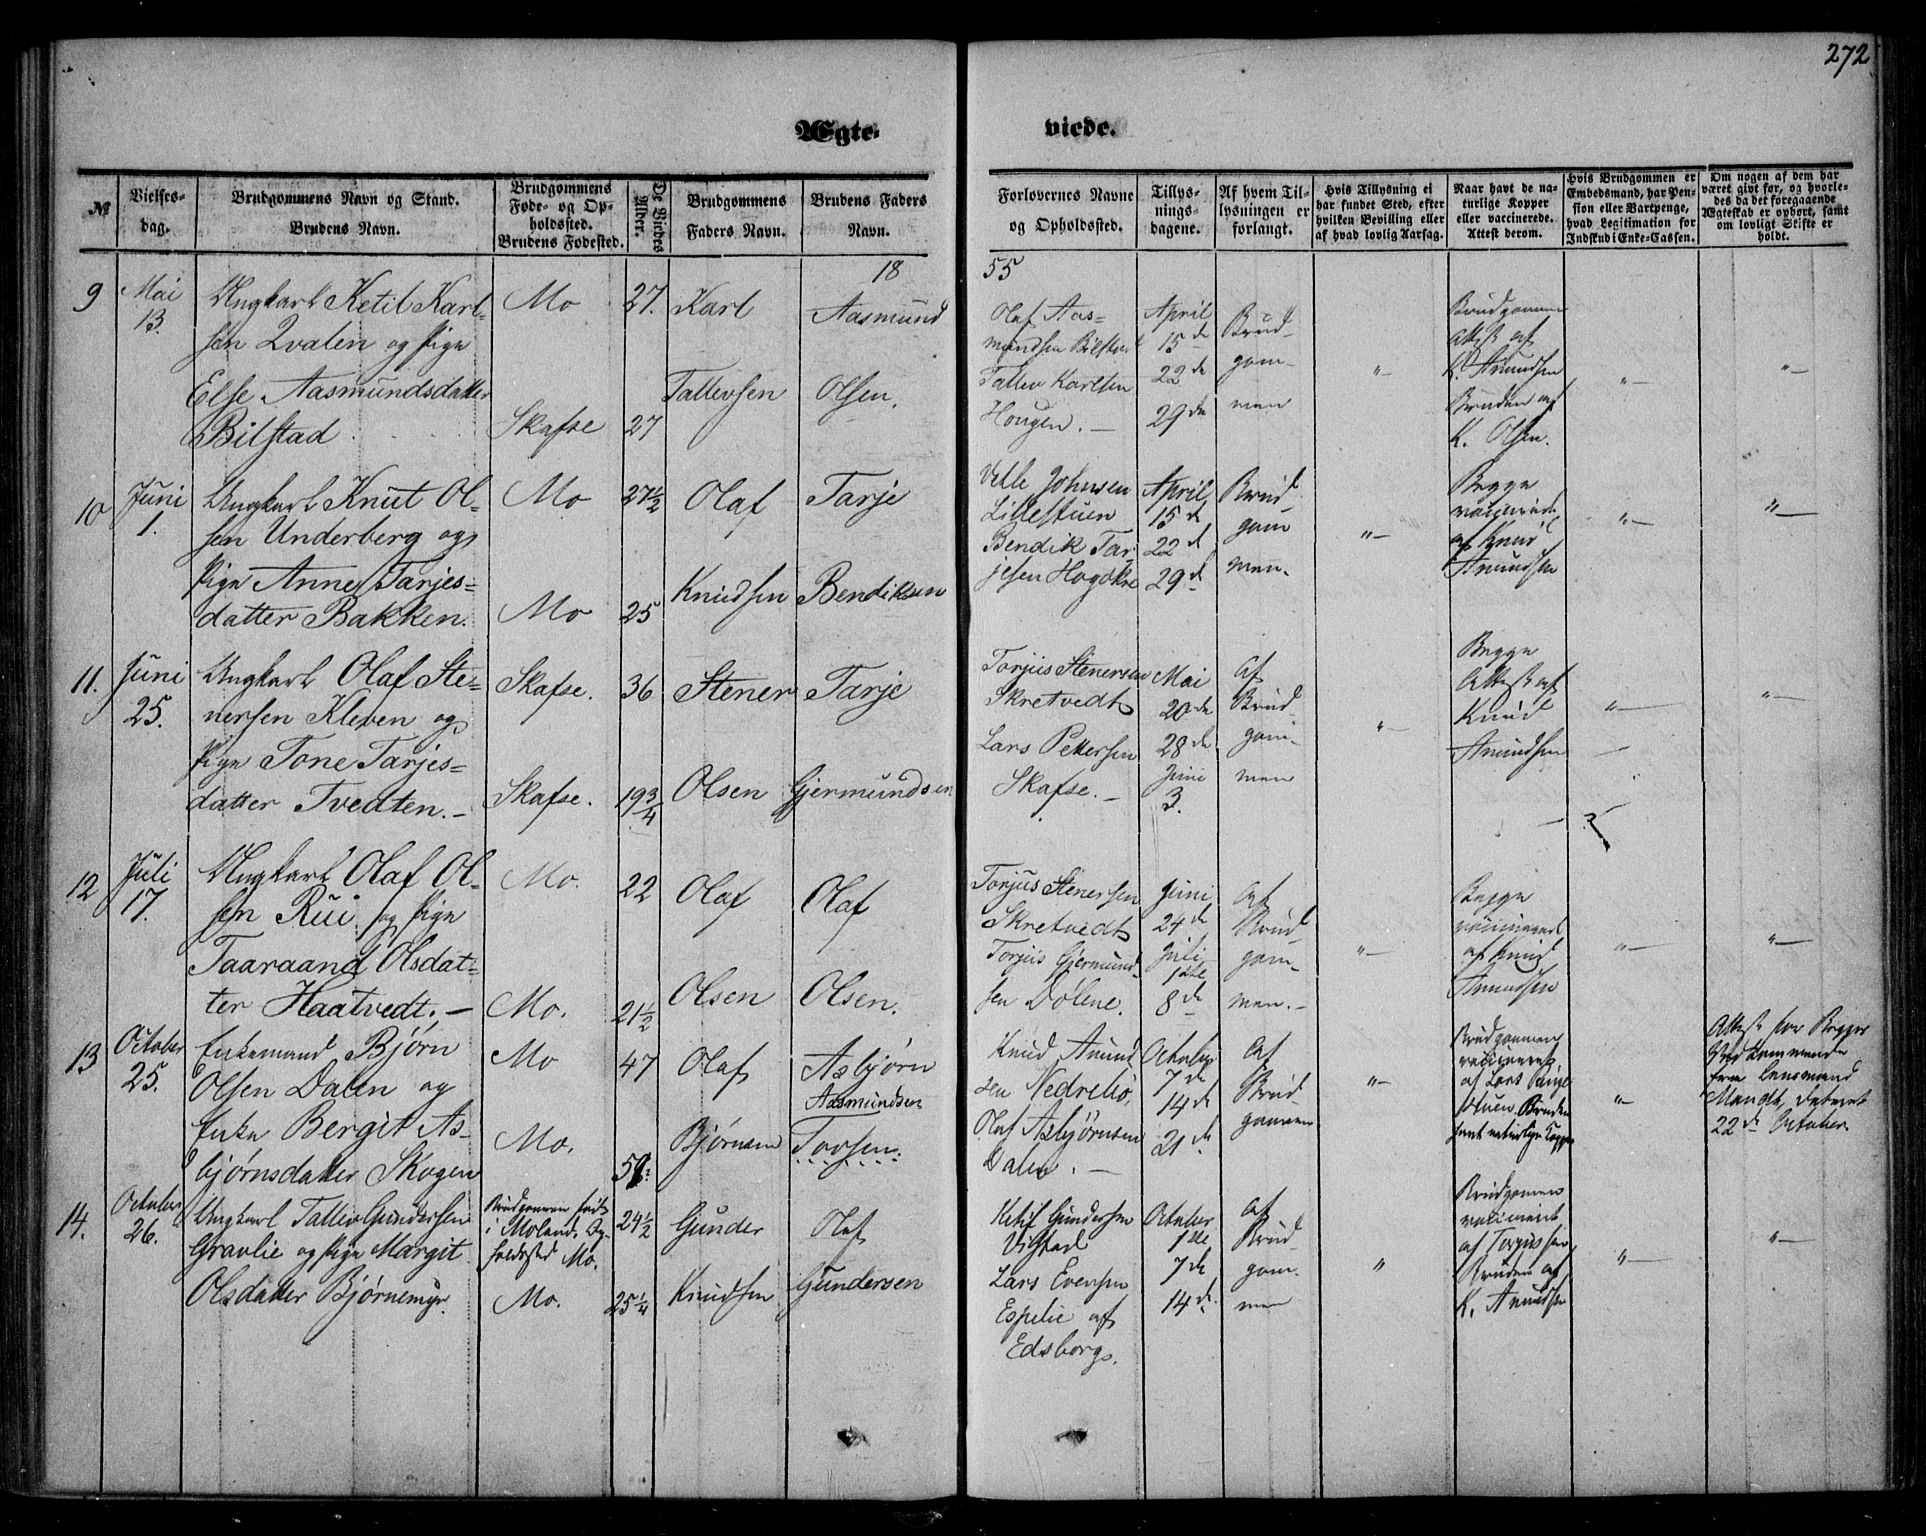 272
Ægte-
viede.
№
Vielses-
dag.
Brudgommens Navn og Stand.
Brudens Navn.
Brudgommens
Føde- og Op-
holdssted.
Brudens Fødested.
De Viedes
Alder.
Brudgommens
Faders Navn.
Brudens Faders
Navn.
Forlovernes Navne
og Opholdssted.
Tillys-
nings-
dagene.
Af hvem Til-
lysningen er
forlangt.
Hvis Tillysning ei
har fundet Sted, efter
hvilken Bevilling eller
af hvad lovlig Aarsag.
Naar havt de na-
turlige Kopper
eller vaccinerede.
Attest derom.
Hvis Brudgommen er
Embedsmand, har Pen-
sion eller Vartpenge,
hvad Legitimation for
Indskud i Enke-Cassen.
Om nogen af dem har
været gift før, og hvorle-
des da det foregaaende
Ægteskab er ophørt, samt
om lovligt Skifte er
holdt.
18
55
9
Mai
13.
Ungkarl Ketil Karl-
sen Qvalen og Pige
Else Aasmundsdatter
Bilstad.
Mo
Skafse
27.
27
Karl
Tallevsen
Aasmund
Olsen.
Olaf Aas-
mundsen Bilstad
Tallev Karlsen
Hougen. —
April
15de
22de
29de
Brud-
gom-
men
"—
Brudgommen
Attest af
K. Anundsen
Bruden af
K. Olsen.
"—
"—
10
Juni
1.
Ungkarl Knut Ol-
sen Underberg og
Pige Anne Tarjes-
datter Bakken.
Mo
Mo
27½
25
Olaf
Knudsen
Tarje
Bendiksen
Vetle Johnsen
Lillestuen
Bendik Tar
jesen
April
15d
22d
29d
Brud-
gom
men.
"—
Begge
vaccinerede
af Knud
Anundsen
"—
"—
11.
Juni
25.
Ungkarl Olaf Ste-
nersen Kleven og
Pige Tone Tarjes-
datter Tvedten. —
Skafse.
Skafse.
36
19¾
Stener
Olsen
Tarje
Gjermundsen
Torjus Stenersen
Skretvedt
Lars Pettersen
Skafse. —
Mai
20de
28de
Juni
3.
Af
Brud-
gom-
men
"—
Begge
Attest af
Knud
Anundsen
"—
"—
12
Juli
17.
Ungkarl Olaf Ol-
sen Rui og Pige
Taaraand Olsdat-
ter Haatvedt. —
Mo.
Mo.
22
21½
Olaf
Olsen
Olaf
Olsen.
Torjus Stenersen
Skretvedt
Torjus Gjermund-
sen Dolene.
Juni
24de
Juli
1ste
8de
af
Brud-
gom-
men. —
"—
Begge
vaccineret
af Knud
Anundsen
"—
"—
13
October
25.
Enkemand Bjørn
Olsen Dalen og
Enke Bergit As-
bjørnsdatter Skogen
Mo
Mo.
47
Olaf
Bjørnsen
Asbjørn
Aasmundsen
Tovsen.
Knud Anund
sen Nedrebø,
Olaf Asbjørnsen
Dalen. —
October
7de
14de
21de
af
Brud-
gommen
"—
Brudgommen
vaccineret
af Lars
Bruden
havt naturlige Kopper
"—
Attest for Begges
Vedkommende
fra Lensmand
Mandt, dateret
22de October.
14.
October
26.
Ungkarl Tallev Gundersen
Gravlie og Pige Margit
Olsdatter Bjørnemyr.
Brudgommen født
i Moland. Op-
holdssted Mo.
Mo.
24½
25¼
Gunder
Knudsen
Olaf
Gundersen
Ketil Gundersen
Vistad
Lars Evensen
Espelie af
Edsborg.
October
1ste
7de
14de
af
Brud-
gom-
men
"
Brudgommen
vaccineret
af
Bruden af
K. Anundsen
"—
"—